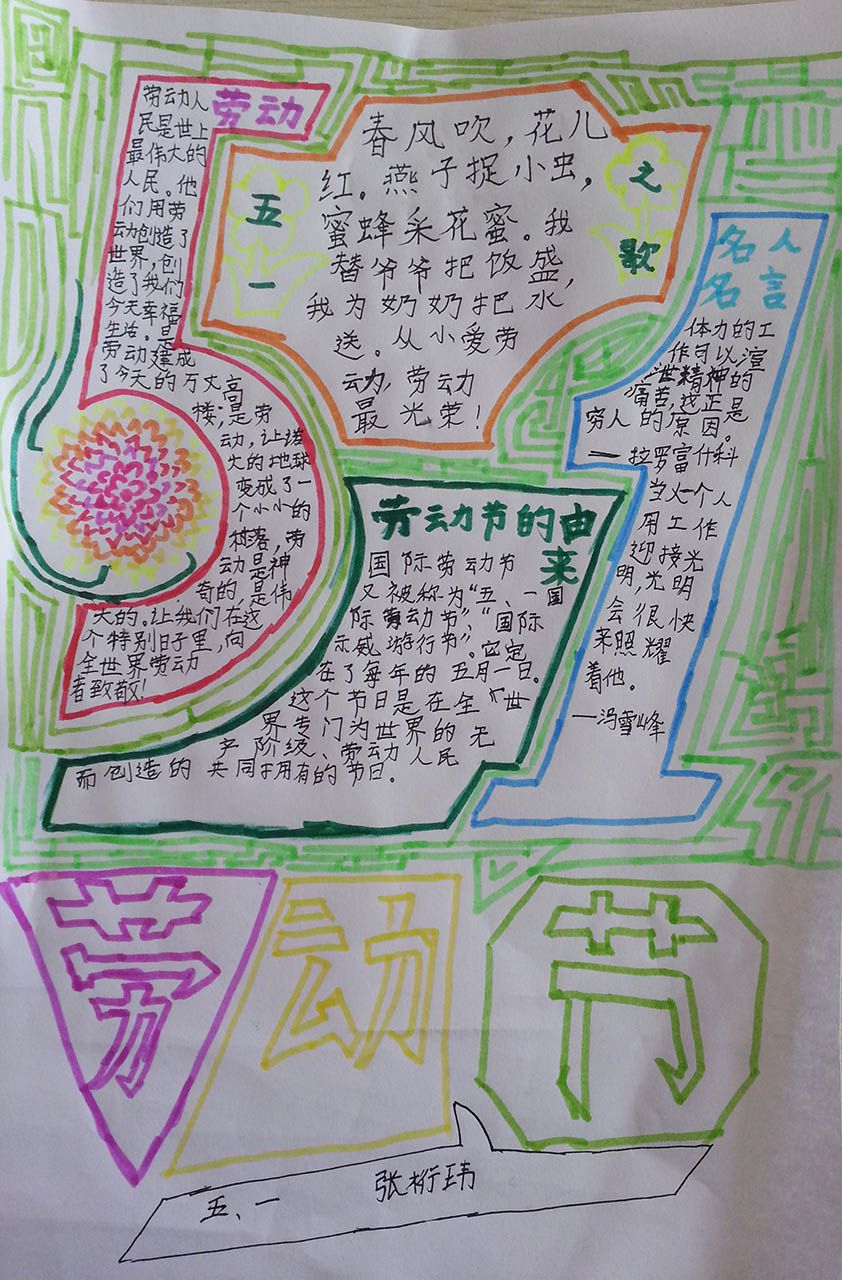 劳动
劳动人
民是世上
最伟大的
人民。他
们用劳
动创造了
世界,创
造了我们
今天幸福
生活。是
劳动建成
了今天的万丈高
楼;是劳
动,让诺
大的地球
变成了一
个小小的
村落,劳
动是神
奇的,是伟
大的。让我们在这
个特别日子里,向
全世界劳动
者致敬!
五一
之歌
春风吹,花儿
红。燕子捉小虫,
蜜蜂采花蜜。我
替爷爷把饭盛,
我为奶奶把水
送。从小爱劳
动,劳动
最光荣!
名人
名言
体力的工
作可以渲
泄精神的
痛苦,这正是
穷人的原因。
—拉罗富什科
当人一个人
用工作
迎接光
明,光明
会很快
来照耀
着他。
—冯雪峰
劳动节的由
来
国际劳动节
又被称为“五、一国
际劳动节”、“国际
示威游行节”。它定
在了每年的五月一日。
这个节日是在全世
界专门为世界的无
产阶级、劳动人民
而创造的共同拥有的节日。
劳动节
五、一 张桁玮